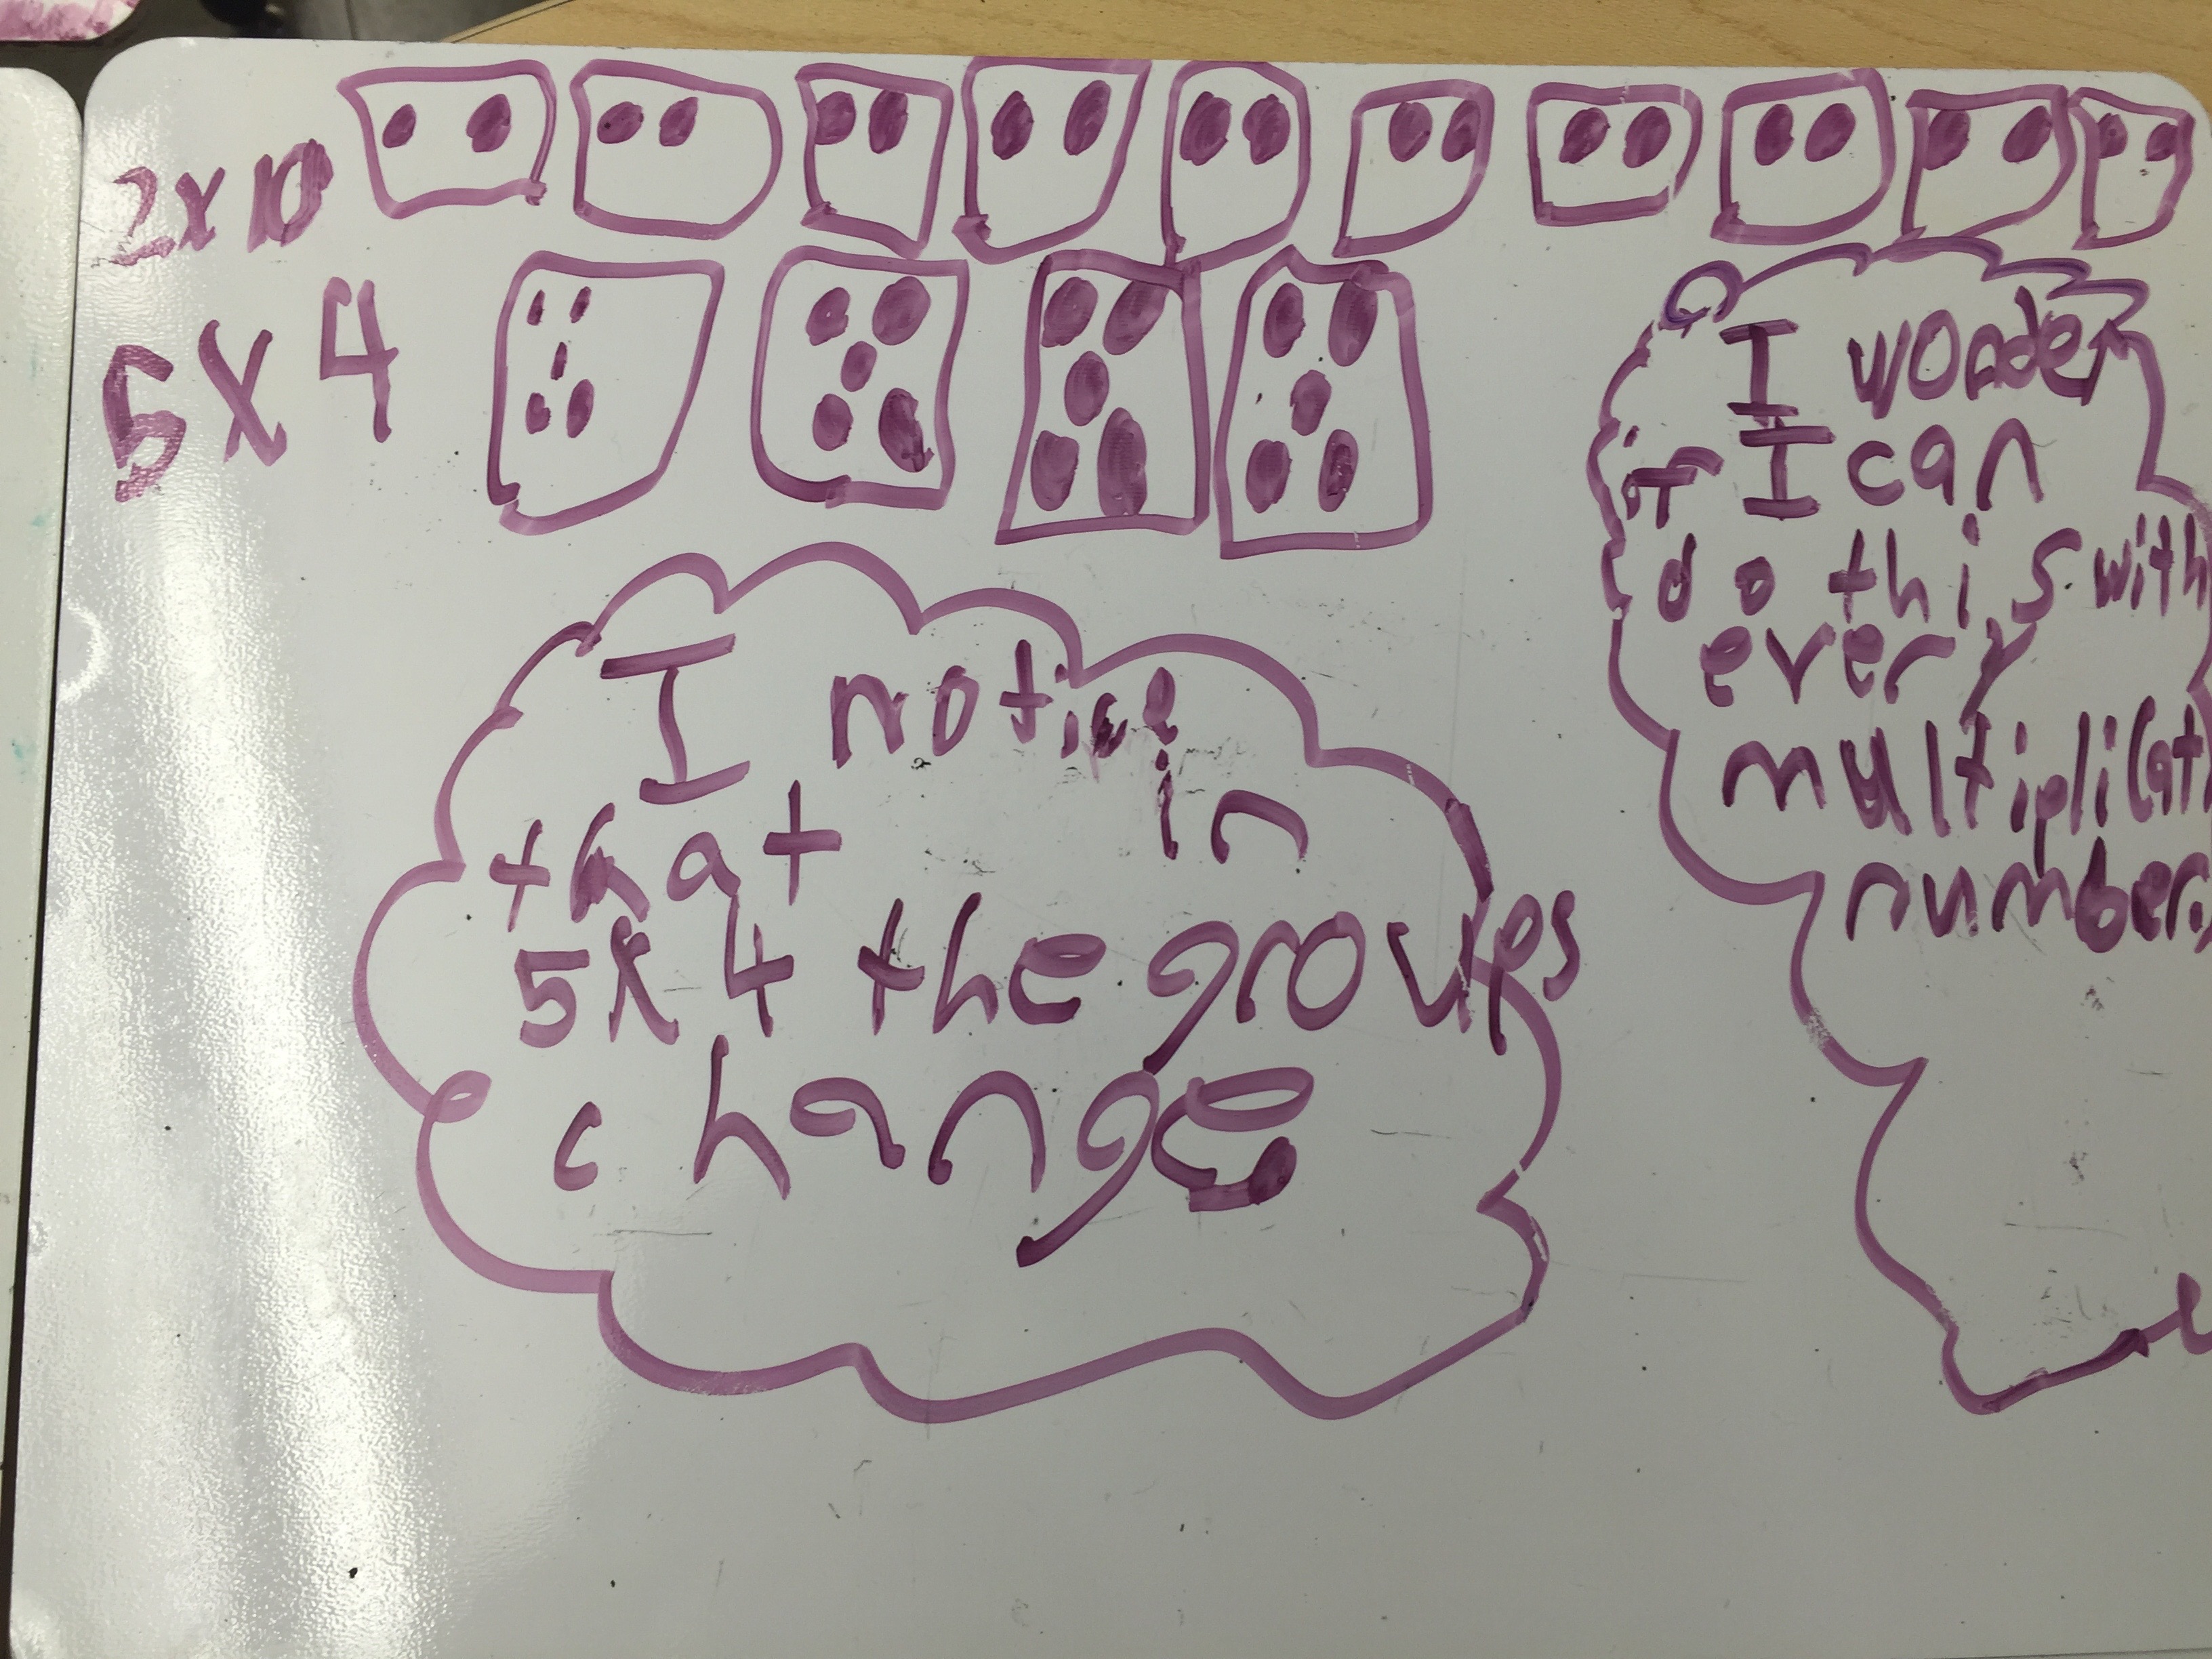 2x10
5x4
I notice
that in
5x4 the groups
change
I wonder
if I can
do this with
every
multiplicat
number